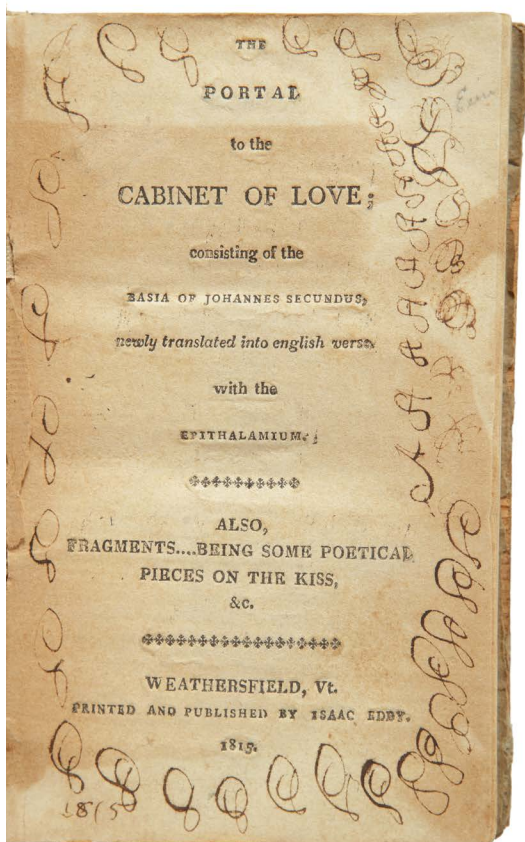 THE
PORTAL
to the
CABINET OF LOVE;
consisting of the
BASIA OF JOHANNES SECUNDUS,
newly translated into english verse,
with the
EPITHALAMIUM.;
ALSO,
FRAGMENTS....BEING SOME POETICAL
PIECES ON THE KISS,
&c.
WEATHERSFIELD, Vt.
PRINTED AND PUBLISHED BY ISAAC EDDY.
1815.
1815